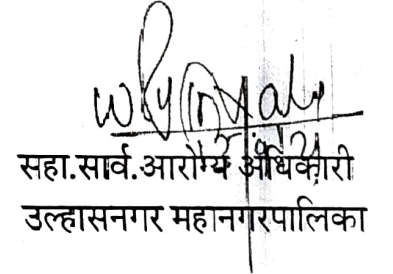 सहा.सार्व.आरोग्य अधिकारी
उल्हासनगर महानगरपालिका